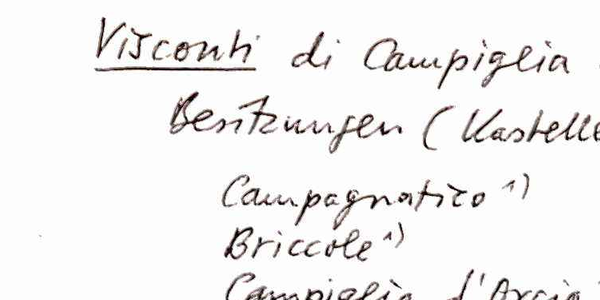 Visconti di Campiglia
Besitzungen (Kastelle
Campagnatico 1)
Briccole 1)
Campiglia d'Orcia